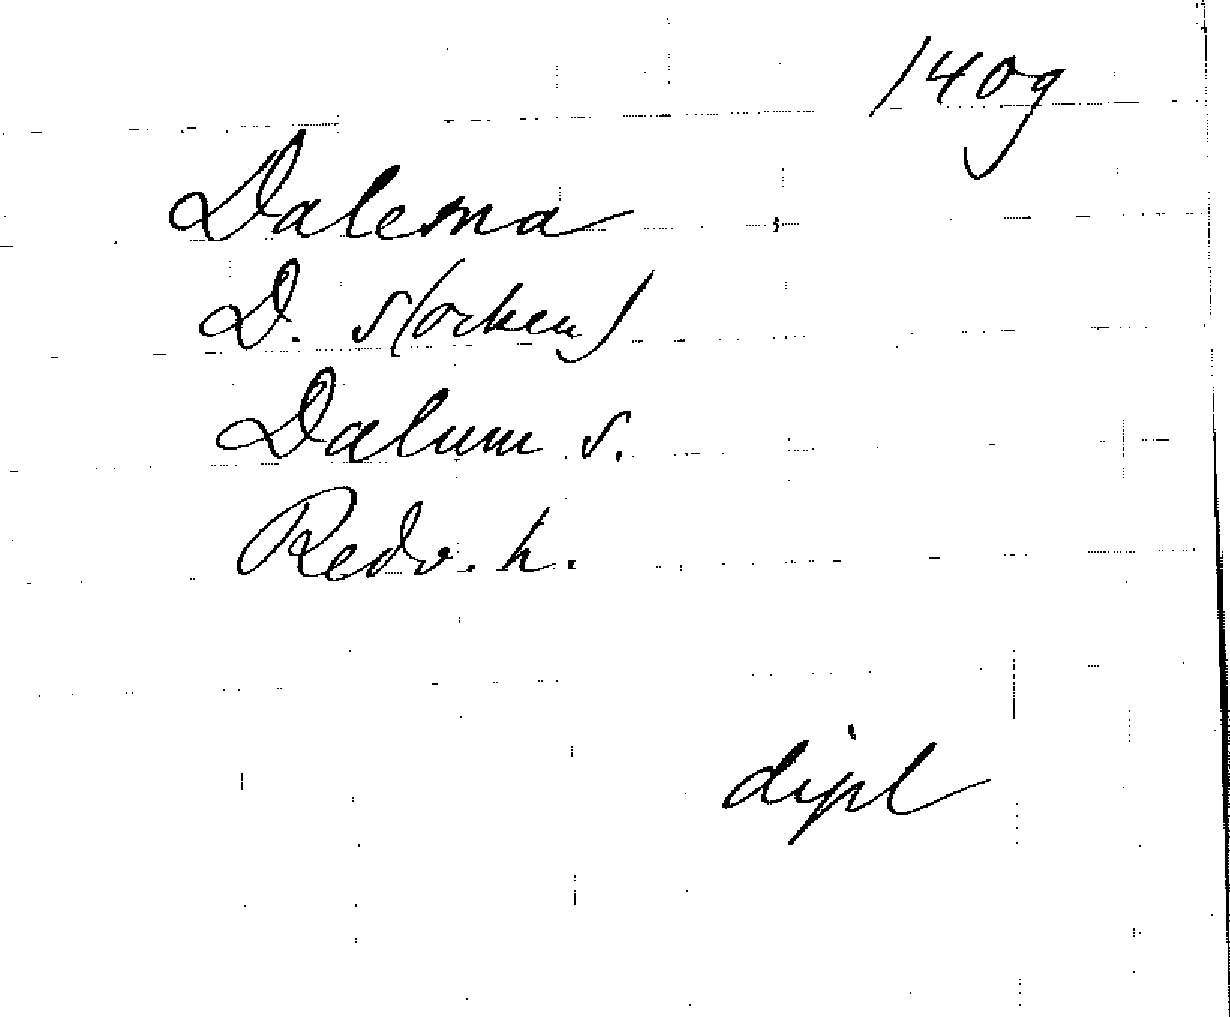 1409
Dalema
D. s(ocken)
Dalum s.
Redv. h.
dipl